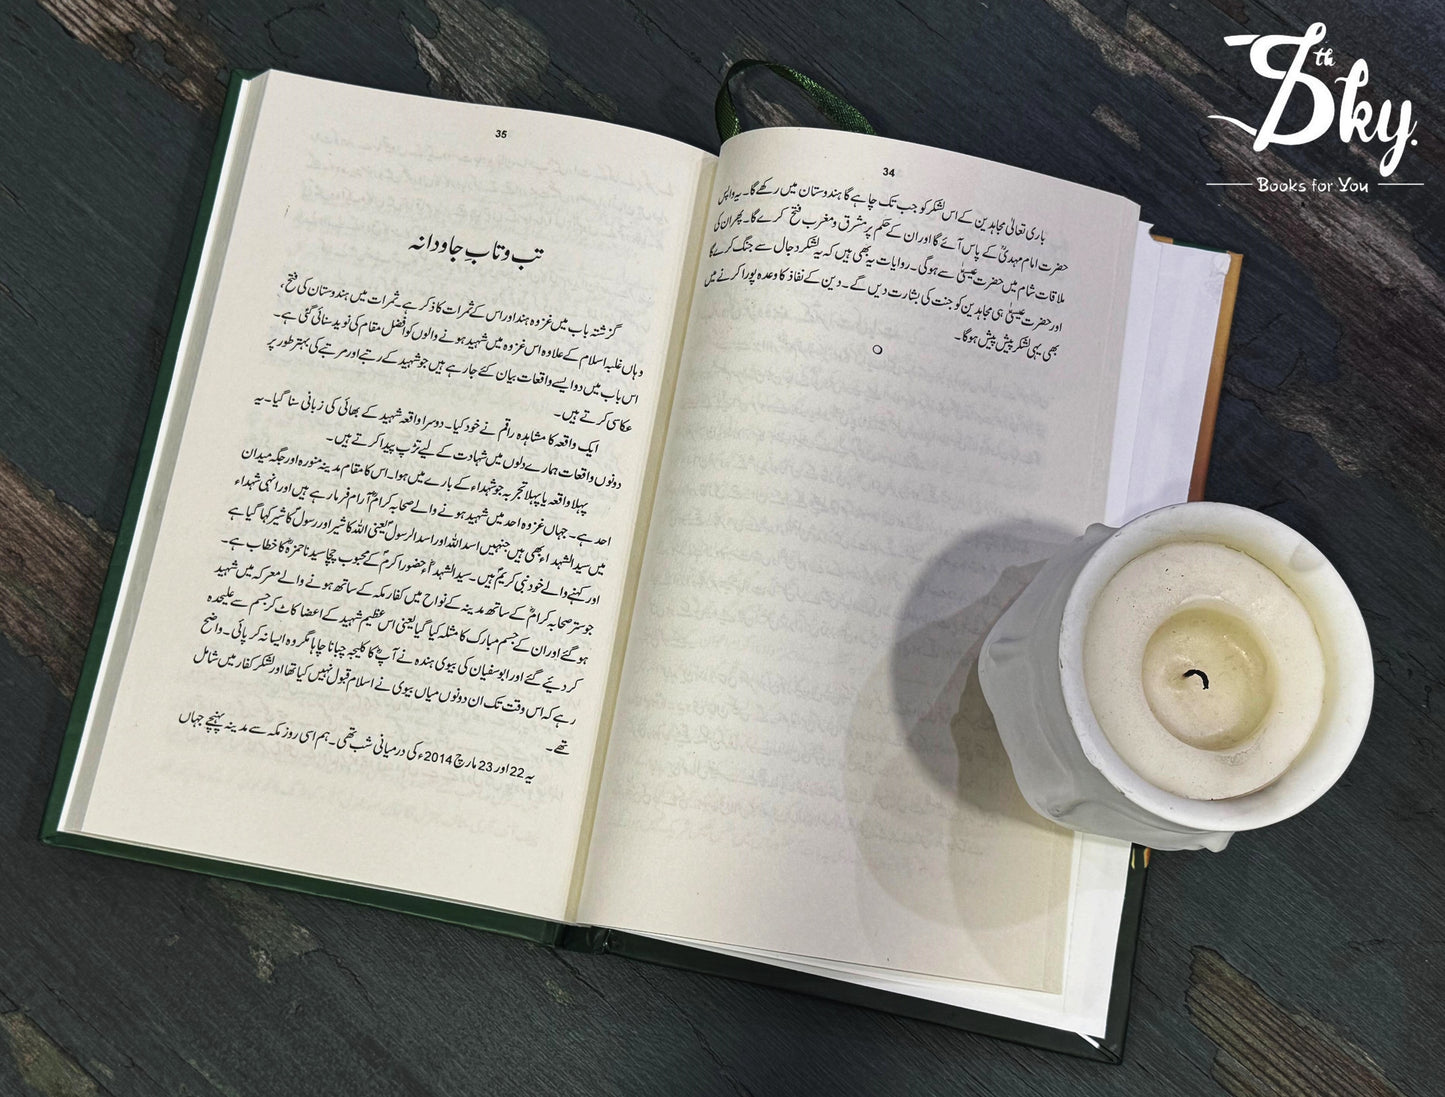 34
باری تعالیٰ مجاہدین کے اس لشکر کو جب تک چاہے گا ہندوستان میں رکھے گا۔ یہ واپس
حضرت امام مہدیؑ کے پاس آئے گا اور ان کے حکم پر مشرق و مغرب فتح کرے گا۔ پھر ان کی
ملاقات شام میں حضرت عیسیٰؑ سے ہوگی۔ روایات یہ بھی ہیں کہ یہ لشکر دجال سے جنگ کرے گا
اور حضرت عیسیٰؑ ہی مجاہدین کو جنت کی بشارت دیں گے۔ دین کے نفاذ کا وعدہ پورا کرنے میں
بھی یہی لشکر پیش پیش ہوگا۔
35
تب و تابِ جاودانہ
گزشتہ باب میں غزوہ ہند اور اس کے ثمرات کا ذکر ہے۔ ثمرات میں ہندوستان کی فتح،
وہاں غلبہ اسلام کے علاوہ اس غزوہ میں شہید ہونے والوں کو افضل مقام کی نوید سنائی گئی ہے۔
اس باب میں دو ایسے واقعات بیان کئے جا رہے ہیں جو شہید کے رتبے اور مرتبے کی بہتر طور پر
عکاسی کرتے ہیں۔
ایک واقعہ کا مشاہدہ راقم نے خود کیا۔ دوسرا واقعہ شہید کے بھائی کی زبانی سنا گیا۔ یہ
دونوں واقعات ہمارے دلوں میں شہادت کے لیے تڑپ پیدا کرتے ہیں۔
پہلا واقعہ یا پہلا تجربہ جو شہداء کے بارے میں ہوا۔ اس کا مقام مدینہ منورہ اور جگہ میدان
احد ہے۔ جہاں غزوہ احد میں شہید ہونے والے صحابہ کرامؓ آرام فرما رہے ہیں اور انہی شہداء
میں سید الشہداء بھی ہیں جنہیں اسد اللہ اور اسد الرسولؐ یعنی اللہ کا شیر اور رسولؐ کا شیر کہا گیا ہے
اور کہنے والے خود نبی کریمؐ ہیں۔ سید الشہداءؓ حضور اکرمؐ کے محبوب چچا سیدنا حمزہؓ کا خطاب ہے۔
جو ستر صحابہ کرامؓ کے ساتھ مدینہ کے نواح میں کفار مکہ کے ساتھ ہونے والے معرکہ میں شہید
ہو گئے اور ان کے جسم مبارک کا مثلہ کیا گیا یعنی اس عظیم شہید کے اعضا کاٹ کر جسم سے علیحدہ
کر دیئے گئے اور ابوسفیان کی بیوی ہندہ نے آپؓ کا کلیجہ چبانا چاہا مگر وہ ایسا نہ کر پائی۔ واضح
رہے کہ اس وقت تک ان دونوں میاں بیوی نے اسلام قبول نہیں کیا تھا اور لشکر کفار میں شامل
تھے۔
یہ 22 اور 23 مارچ 2014ء کی درمیانی شب تھی۔ ہم اسی روز مکہ سے مدینہ پہنچے جہاں
Sky
th
Books for You